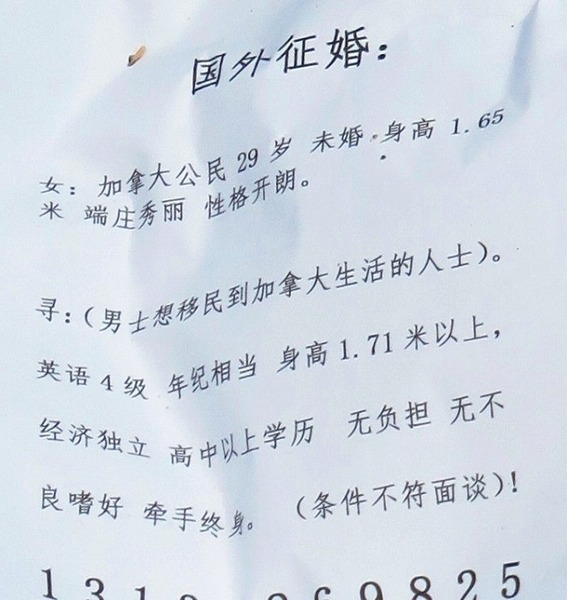 国外征婚：
女：加拿大公民 29 岁 未婚 身高 1.65
米 端庄秀丽 性格开朗。
寻：（男士想移民到加拿大生活的人士）。
英语 4 级 年纪相当 身高 1.71 米以上，
经济独立 高中以上学历 无负担 无不
良嗜好 牵手终身。（条件不符面谈）！